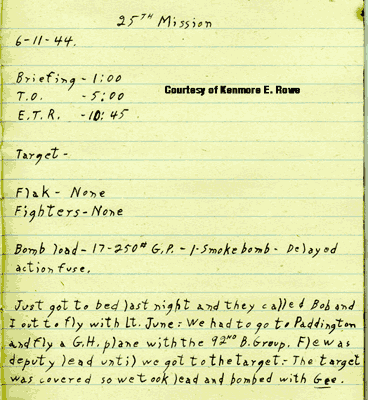 25TH Mission
6-11-44.
Briefing - 1:00
Courtesy of Kenmore E. Rowe
T.O. - 5:00
E.T.R. - 10:45
Target -
Flak - None
Fighters - None
Bomb load - 17-250# G.P. - 1-Smoke bomb - Delayed
action fuse.
Just got to bed last night and they called Bob and
I out to fly with Lt. June: We had to go to Paddington
and fly a G.H. plane with the 92ND B. Group. Flew as
deputy lead until we got to the target: The target
was covered so we took lead and bombed with Gee.